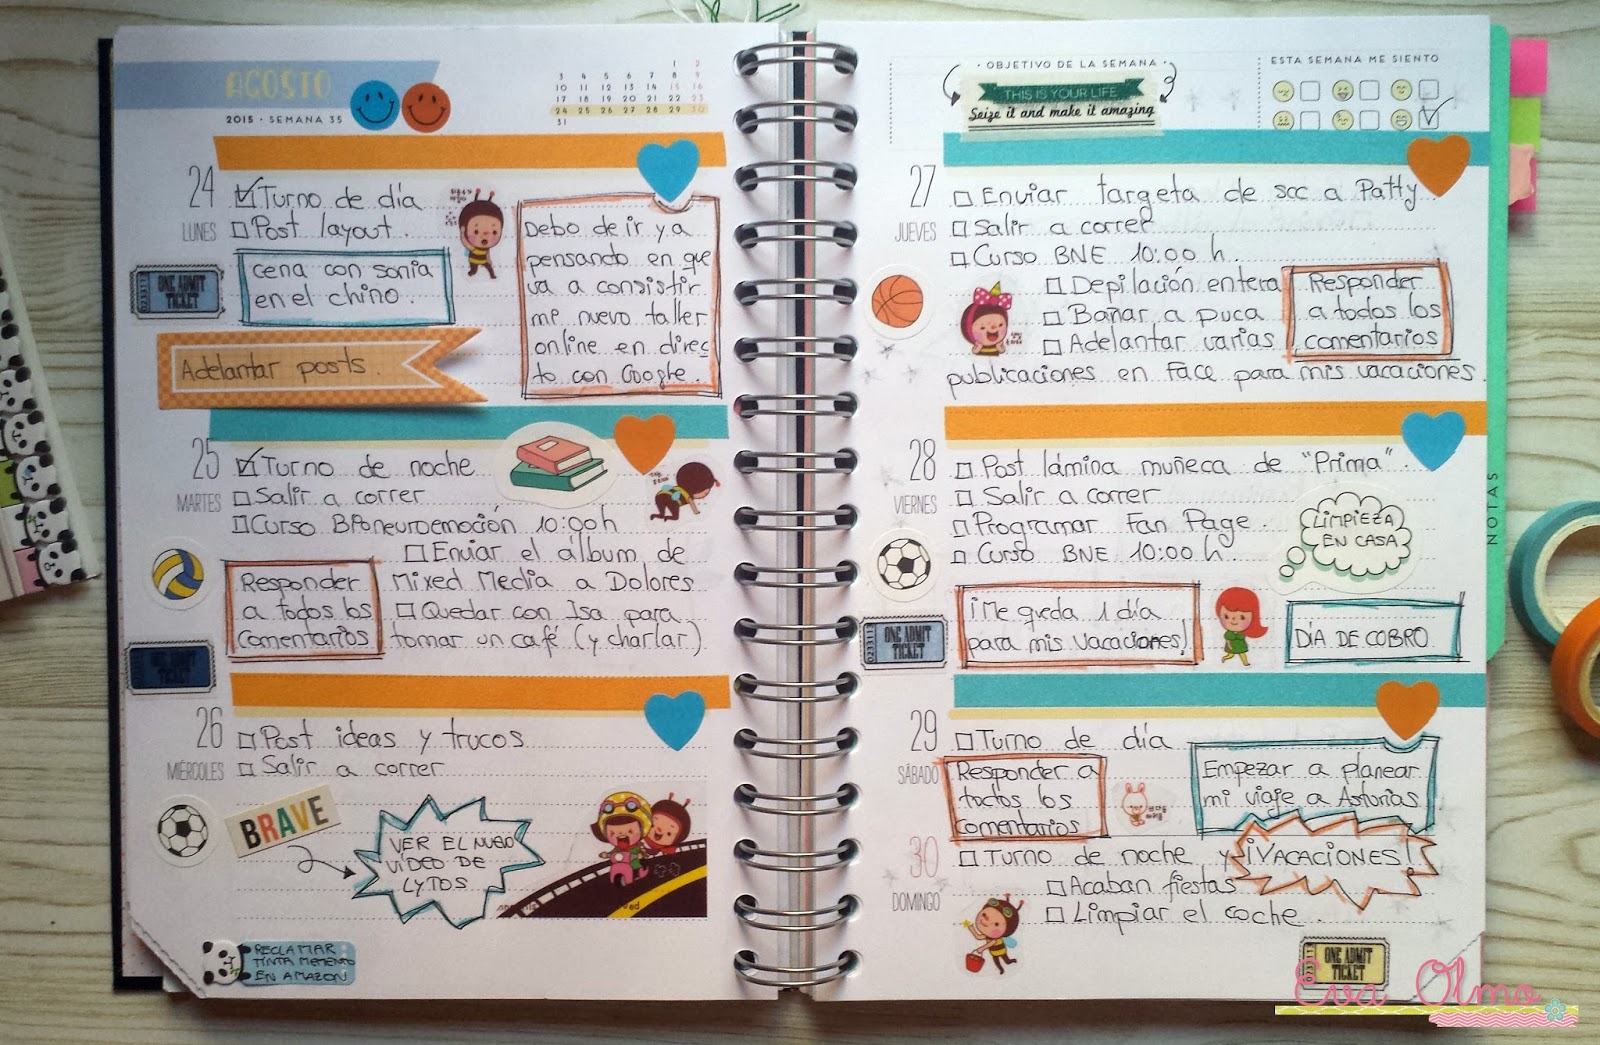 AGOSTO
2015 · SEMANA 35
1 2
3 4 5 6 7 8 9
10 11 12 13 14 15 16
17 18 19 20 21 22 23
24 25 26 27 28 29 30
31
24
LUNES
Turno de día
Post layout.
cena con sonia
en el chino.
ONE ADMIT
TICKET
Adelantar posts.
Debo de ir ya
pensando en que
va a consistir
mi nuevo taller
online en direc
to con Google.
25
MARTES
Turno de noche
Salir a correr
Curso BPneuroemoción 10:00h
Enviar el álbum de
Mixed Media a Dolores
Quedar con Isa para
tomar un café (y charlar)
Responder
a todos los
comentarios
ONE ADMIT
TICKET
26
MIÉRCOLES
Post ideas y trucos
Salir a correr
BRAVE
VER EL NUEVO
VÍDEO DE
LYTOS
RECLAMAR
TINTA MEMENTO
EN AMAZON
· OBJETIVO DE LA SEMANA ·
THIS IS YOUR LIFE
Seize it and make it amazing
ESTA SEMANA ME SIENTO
27
JUEVES
Enviar targeta de scc a Patty
Salir a correr
Curso BNE 10:00 h.
Depilación entera
Bañar a puca
Adelantar varias
publicaciones en face para mis vacaciones.
Responder
a todos los
comentarios
28
VIERNES
Post lámina muñeca de "Prima".
Salir a correr
Programar Fan Page.
Curso BNE 10:00 h.
LIMPIEZA
EN CASA
¡Me queda 1 día
para mis vacaciones!
DÍA DE COBRO.
ONE ADMIT
TICKET
NOTAS
29
SÁBADO
Turno de día
Responder a
todos los
comentarios
Empezar a planear
mi viaje a Asturias
30
DOMINGO
Turno de noche y ¡VACACIONES!
Acaban fiestas
Limpiar el coche.
ONE ADMIT
TICKET
Eva Olmo